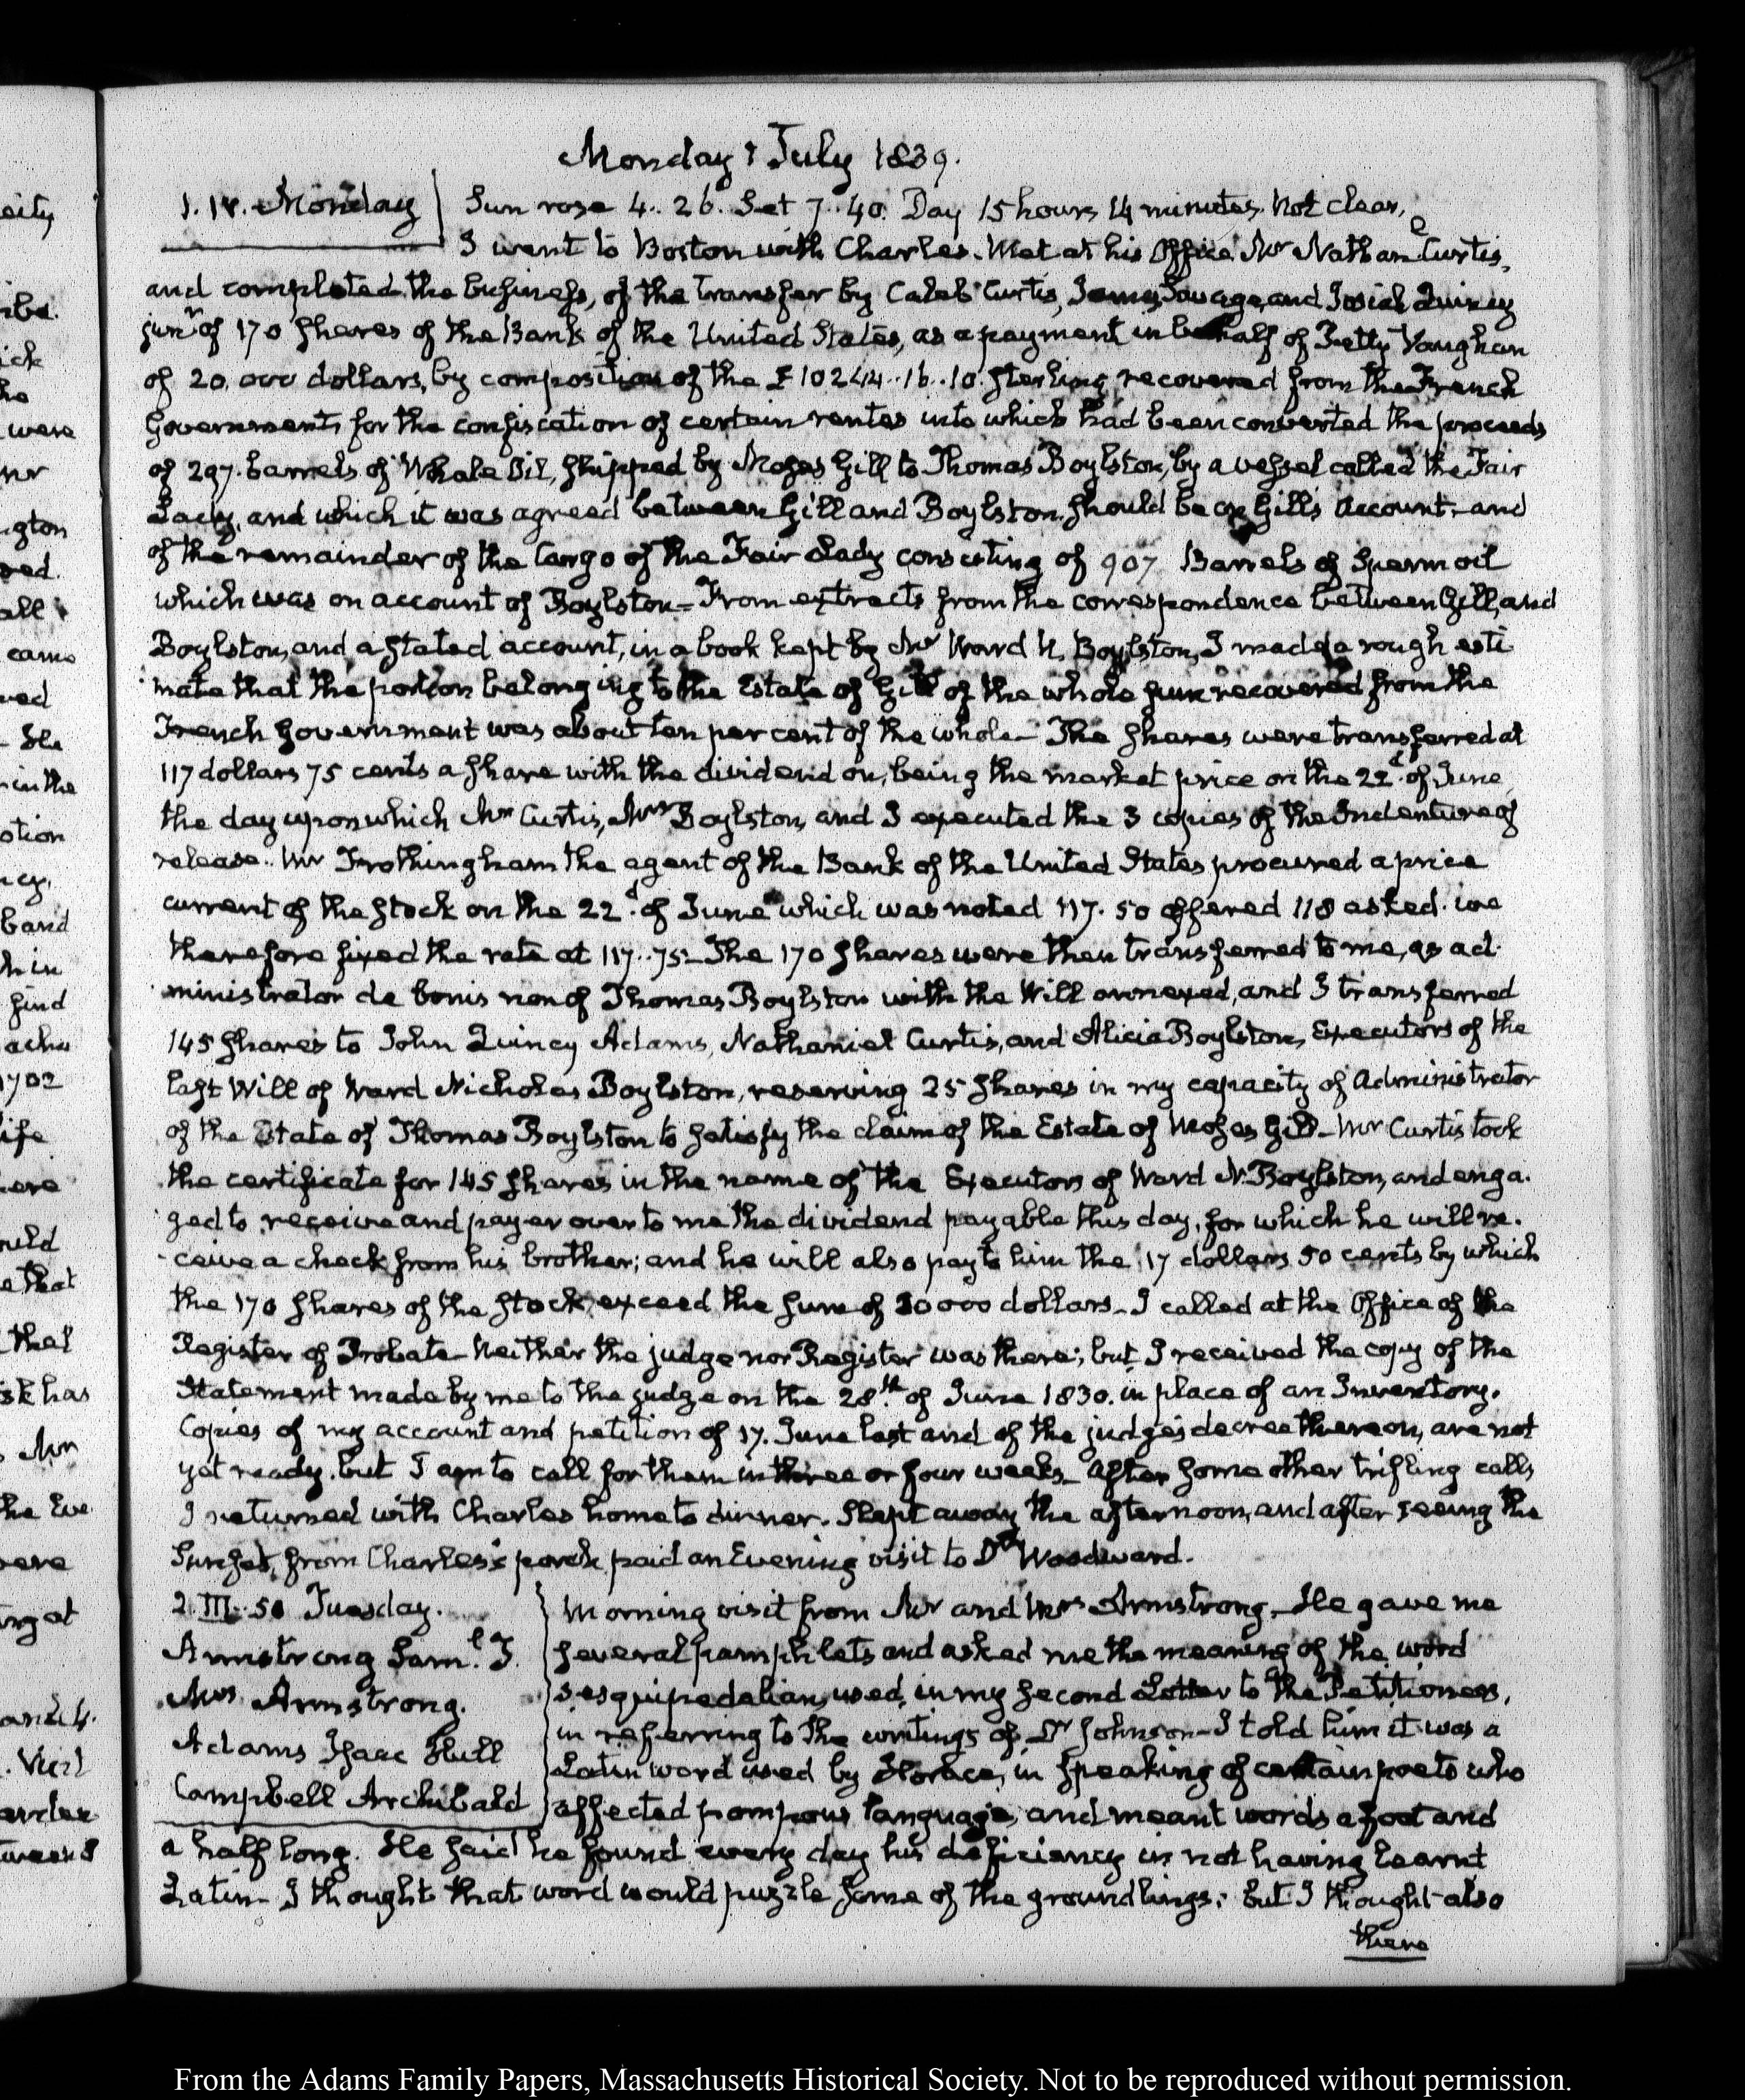 Monday 1 July 1839.
1. IV. Monday
Sun rose 4..26. Set 7..40. Day 15 hours 14 minutes. Not clear,
I went to Boston with Charles. Met at his Office Mr Nathan.l Curtis,
and completed the business, of the transfer by Caleb Curtis, James Savage, and Josiah Quincy
junr of 170 Shares of the Bank of the United States, as a payment in behalf of Petty Vaughan
of 20.000 dollars, by composition of the 16..10. Sterling recovered from the French
Government, for the confiscation of certain rentes into which had been converted the proceeds
of 297. barrels of Whale Oil, shipped by Moses Gill to Thomas Boylston, by a vessel called the Fair
Lady, and which it was agreed between Gill and Boylston should be on Gill's Account, and
of the remainder of the Cargo of the Fair Lady consisting of 907 Barrels of Sperm oil
which was on account of Boylston– From extracts from the correspondence between Gill, and
Boylston, and a stated account, in a book kept by Mr Ward N. Boylston, I made a rough esti
mate that the portion belonging to the Estate of Gill of the whole sum recovered from the
French Government was about ten per cent of the whole– The Shares were transferred at
117 dollars 75 cents a share with the dividend on, being the market price on the 22d. of June,
the day upon which Mr Curtis, Mrs Boylston, and I executed the 3 copies of the Indenture of
release.. Mr Frothingham the agent of the Bank of the United States procured a price
current of the stock on the 22d. of June which was noted 117. 50 offered 118 asked. we
therefore fixed the rate at 117..75– The 170 shares were then transferred to me, as ad
ministrator de bonis non of Thomas Boylston with the Will annexed, and I transferred
145 shares to John Quincy Adams, Nathaniel Curtis, and Alicia Boylston, Executors of the
last Will of Ward Nicholas Boylston, reserving 25 shares in my capacity of Administrator
of the Estate of Thomas Boylston to satisfy the claim of the Estate of Moses Gill– Mr Curtis took
the certificate for 145 shares in the name of the Executors of Ward N. Boylston, and enga.
ged to receive and pay over to me the dividend payable this day, for which he will re.
ceive a check from his brother; and he will also pay to him the 17 dollars 50 cents by which
the 170 shares of the stock, exceed the sum of 20000 dollars– I called at the Office of the
Register of Probate– Neither the judge nor Register was there; but I received the copy of the
Statement made by me to the judge on the 28th. of June 1830. in place of an Inventory.
Copies of my account and petition of 17. June last and of the judge's decree thereon, are not
yet ready. but I am to call for them in three or four weeks– After some other trifling calls
I returned with Charles home to dinner. Slept away the afternoon, and after seeing the
Sunset, from Charles's porch paid an Evening visit to Dr Woodward.
2. III..50 Tuesday.
Armstrong Sam.l T.
Mrs Armstrong.
Adams Isaac Hull
Campbell Archibald
Morning visit from Mr and Mrs Armstrong– He gave me
several pamphlets and asked me the meaning of the word
sesquipedalian, used, in my second Letter to the Petitioners,
in referring to the writings of Dr Johnson– I told him it was a
Latin word used by Horace, in speaking of certain poets who
affected pompous language, and meant words a foot and
a half long. He said he found every day his deficiency in not having learnt
Latin– I thought that word would puzzle some of the groundlings; but I thought also
there
From the Adams Family Papers, Massachusetts Historical Society. Not to be reproduced without permission.